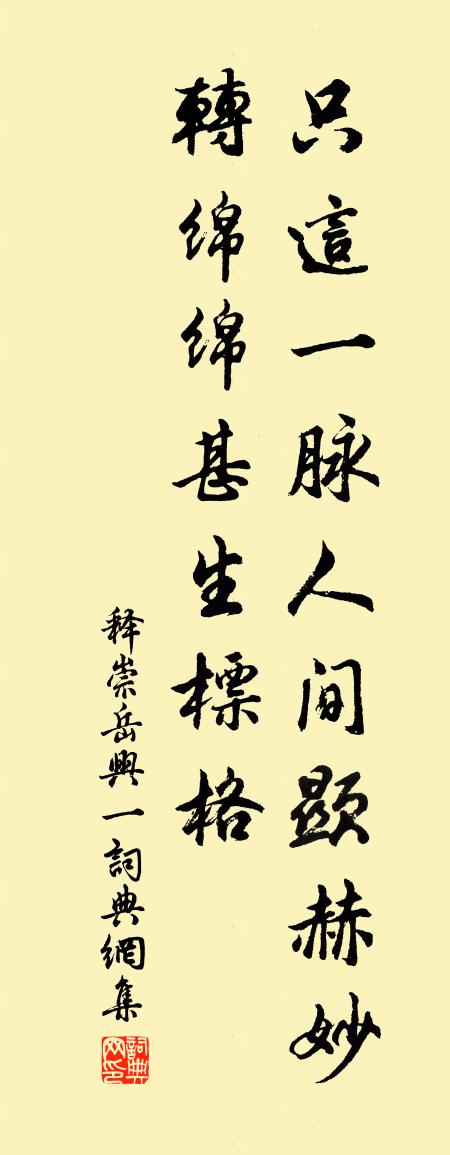 只這一脉人间顯赫妙
轉绵绵甚生標格
释崇岳興一詞典網集
詞典网印